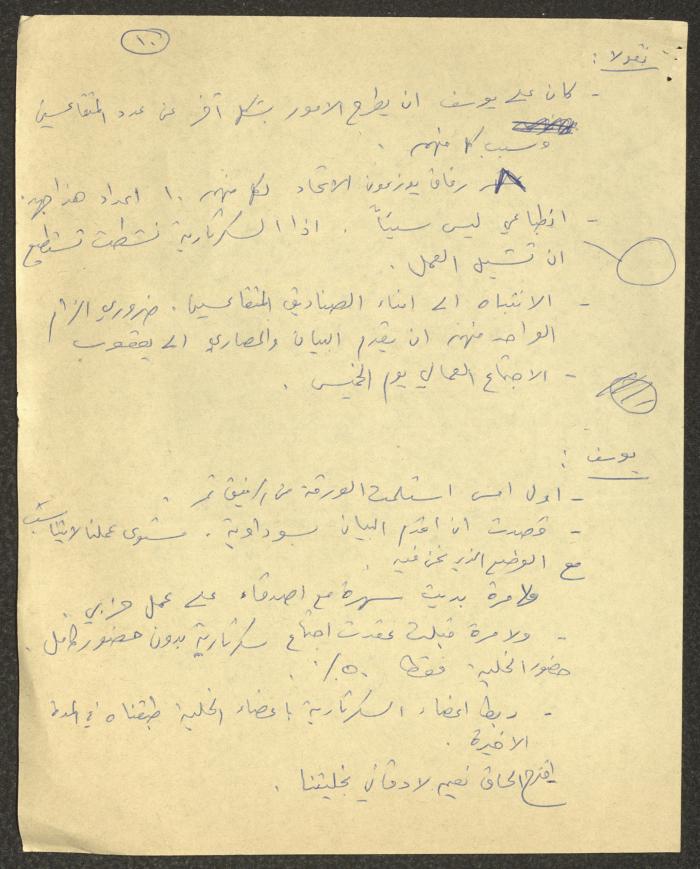 ١٠
نقولا :
- كان على يوسف ان يطرح الامور بشكل آخر عن عدد المتقاعسين
وسبب كل منهم .
رفاق يوزعون الاتحاد لكل منهم ١٠ اعداد هذا جهد.
- انطباعي ليس سيئاً . اذا السكرتارية نشطت تستطيع
ان تنشيل العمل .
- الانتباه الى امناء الصناديق المتقاعسين . ضروري الزام
الواحد منهم ان يقدم البيان والمصاري الى يعقوب
- الاجتماع العمالي يوم الخميس .
يوسف :
- اول امس استلمت الورقة من الرفيق نمر .
- قصدت ان اقدم البيان بسوداوية . مستوى عملنا لا يتناسب
مع الوضع الذي نحن فيه .
ولا مرة بديت سهرة مع اصدقاء على عمل حزبي .
- ولا مرة قبلت عقدت اجتماع سكرتارية بدون حضور كامل .
حضور الخلية فقط ٥٠٪ .
- ربط اعضاء السكرتارية باعضاء الخلية طبقناه في المدة
الاخيرة .
اقترح الحاق نعيم بخليتنا .